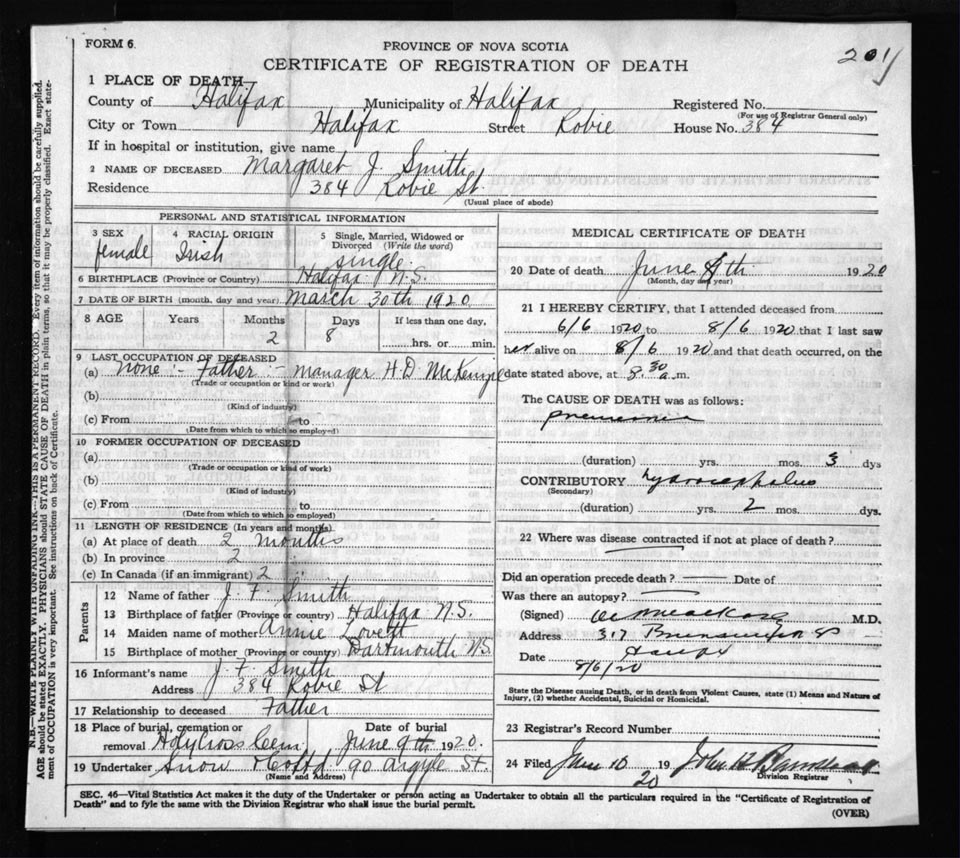 FORM 6.
PROVINCE OF NOVA SCOTIA
201
CERTIFICATE OF REGISTRATION OF DEATH
1 PLACE OF DEATH—
County of Halifax Municipality of Halifax Registered No.
(For use of Registrar General only)
City or Town Halifax Street Robie House No. 384
If in hospital or institution, give name
2 NAME OF DECEASED Margaret J. Smith
Residence 384 Robie St.
(Usual place of abode)
PERSONAL AND STATISTICAL INFORMATION
3 SEX 4 RACIAL ORIGIN 5 Single, Married, Widowed or Divorced (Write the word)
female Irish single
6 BIRTHPLACE (Province or Country) Halifax N.S.
7 DATE OF BIRTH (month, day and year) March 30th 1920
8 AGE Years Months Days If less than one day,
2 8 hrs. or min.
9 LAST OCCUPATION OF DECEASED
(a) none :- Father :- manager H.D. McKenzie
(Trade or occupation or kind or work)
(b)
(Kind of industry)
(c) From to
(Date from which to which so employed)
10 FORMER OCCUPATION OF DECEASED
(a)
(Trade or occupation or kind of work)
(b)
(Kind of industry)
(c) From to
(Date from which to which so employed)
11 LENGTH OF RESIDENCE (In years and months)
(a) At place of death 2 months
(b) In province 2 "
(c) In Canada (if an immigrant) 2 "
Parents
12 Name of father J. F. Smith
13 Birthplace of father (Province or country) Halifax N.S.
14 Maiden name of mother Annie
15 Birthplace of mother (Province or country) Dartmouth N.S.
16 Informant's name J. F. Smith
Address 384 Robie St
17 Relationship to deceased Father
18 Place of burial, cremation or removal Date of burial
Holy Cross Cem. June 9th 1920.
19 Undertaker Snow 90 Argyle St.
(Name and Address)
MEDICAL CERTIFICATE OF DEATH
20 Date of death June 8th 1920
(Month, day and year)
21 I HEREBY CERTIFY, that I attended deceased from
6/6 1920 to 8/6 1920 that I last saw
her alive on 8/6 1920 and that death occurred, on the
date stated above, at 8.30 a.m.
The CAUSE OF DEATH was as follows:
pneumonia
(duration) yrs. mos. 3 dys
CONTRIBUTORY hydrocephalus
(Secondary)
(duration) yrs. 2 mos. dys.
22 Where was disease contracted if not at place of death?
Did an operation precede death? — Date of
Was there an autopsy? —
(Signed) M.D.
Address 317 Brunswick St
Halifax
Date 8/6/20
State the Disease causing Death, or in death from Violent Causes, state (1) Means and Nature of
Injury, (2) whether Accidental, Suicidal or Homicidal.
23 Registrar's Record Number
24 Filed June 10 1920 John H Barnstead
Division Registrar
SEC. 46—Vital Statistics Act makes it the duty of the Undertaker or person acting as Undertaker to obtain all the particulars required in the "Certificate of Registration of
Death" and to fyle the same with the Division Registrar who shall issue the burial permit.
(OVER)
N.B.—WRITE PLAINLY, WITH UNFADING INK—THIS IS A PERMANENT RECORD. Every item of information should be carefully supplied.
AGE should be stated EXACTLY. PHYSICIANS should STATE CAUSE OF DEATH in plain terms, so that it may be properly classified. Exact statement
of OCCUPATION is very important. See instructions on back of Certificate.